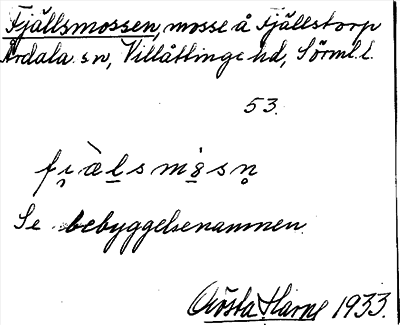 Fjällsmossen, mosse å Fjällstorp
Årdala sn, Villåttinge hd, Sörml. l.
53.
fi̯àlsmàsn̥
Se bebyggelsenamnen.
Gösta Harne 1933.